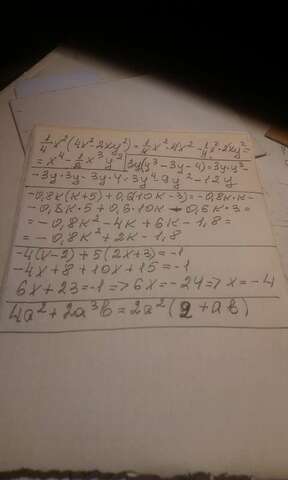 1/4 x²(4x²-2xy²)=1/4 x²·4x²-1/4 x²·2xy²=
=x⁴-1/2 x³y² | 3y(y³-3y-4)=3y·y³-
-3y·3y-3y·4=3y⁴-9y²-12y
-0,8к(к+5)+0,6(10к-3)=-0,8к·к-
-0,8к·5+0,6·10к-0,6к·3=
=-0,8к²-4к+6к-1,8=
=-0,8к²+2к-1,8
-4(x-2)+5(2x+3)=-1
-4x+8+10x+15=-1
6x+23=-1=>6x=-24=>x=-4
4a²+2a³b=2a²(2+ab)